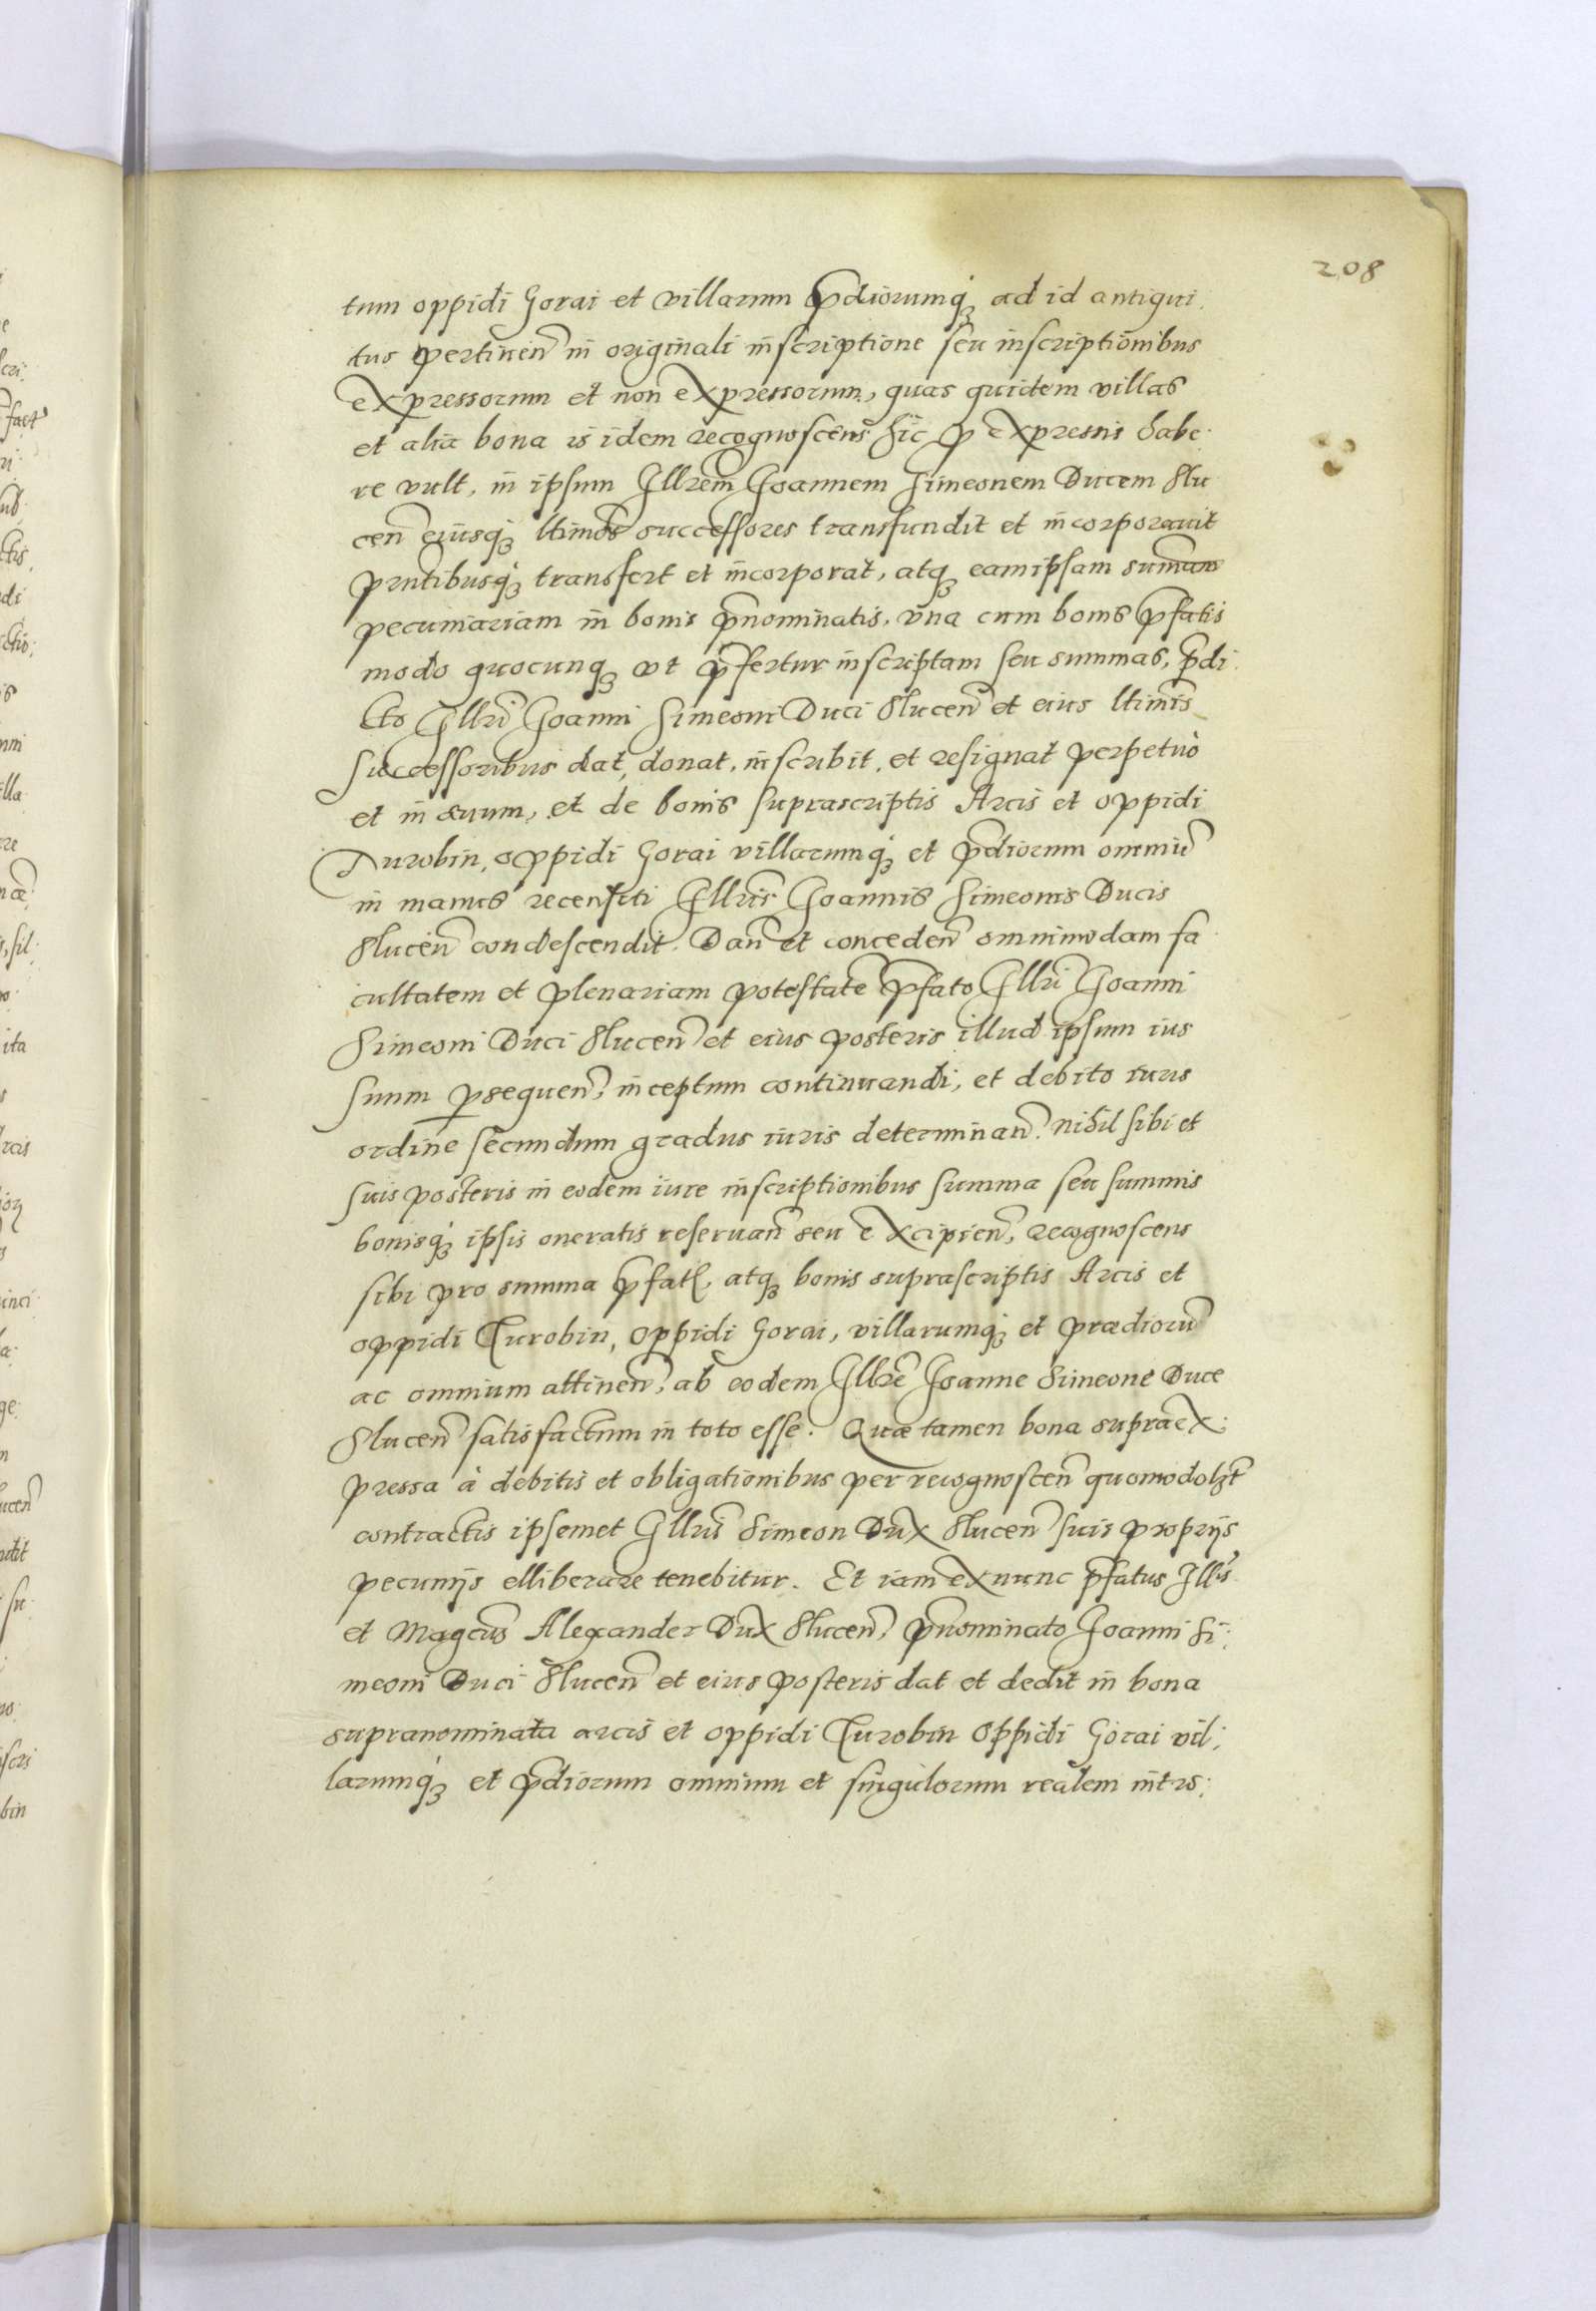 208
tum oppidi Gorai et villarum p̄diorumq́ꝫ ad id antiqui:
tus pertinen̄ in originali inscriptione seu inscriptionibus
expressorum et non expressorum, quas quidem villas
et alia bona is idem recognoscens hic p̱ expressis habe:
re vult, in ipsum Illrēm Joannem Simeonem Ducem Slu
cen̄ eiusq́ꝫ ltimōs successores transfundit et incorporauit
pn̄tibusq́ꝫ transfert et incorporat, atqꝫ eamipsam sum̄am
pecuniariam in bonis p̄nominatis, vna cum bonis p̄fatis
modo quocunqꝫ vt p̄fertur inscriptam seu summas, p̄di:
cto Illrī Joanni Simeoni Duci Slucen̄ et eius ltimīs
successoribus dat, donat, inscribit, et resignat perpetuò
et in æuum, et de bonis suprascriptis Arcis et oppidi
Turobin, oppidi Gorai villarumq́ꝫ et p̄diorum omniū
in manus recensiti Illris̄ Joannis Simeonis Ducis
Slucen̄ condescendit. Dan̄ et conceden̄ omnimodam fa
cultatem et plenariam potestatē p̄fato Illrī Joanni
Simeoni Duci Slucen̄ et eius posteris illud ipsum ius
suum p̱sequen̄, inceptum continuandi, et debito iuris
ordine secundum gradus iuris determinan̄. nihil sibi et
suis posteris in eodem iure inscriptionibus summa seu summis
bonisq́ꝫ ipsis oneratis reseruan̄ seu excipien̄, recognoscens
sibi pro summa p̄fatꝭ, atqꝫ bonis suprascriptis Arcis et
oppidi Turobin, oppidi Gorai, villarumq́ꝫ et prædiorū
ac omnium attinen̄, ab eodem Illrē Joanne Simeone Duce
Slucen̄ satisfactum in toto esse. Quæ tamen bona supraex:
pressa à debitis et obligationibus per recognoscen̄ quomodolꝫt
contractis ipsemet Illris̄ Simeon Dux Slucen̄ suis proprijs
pecunijs elliberare tenebitur. Et iam ex nunc p̄fatus Illris̄
et Magcūs Alexander Dux Slucen̄, p̄nominato Joanni Si:
meoni Duci Slucen̄ et eius posteris dat et dedit in bona
supranominata arcis et oppidi Turobin Oppidi Gorai vil:
larumq́ꝫ et p̄diorum omnium et singulorum realem intro: